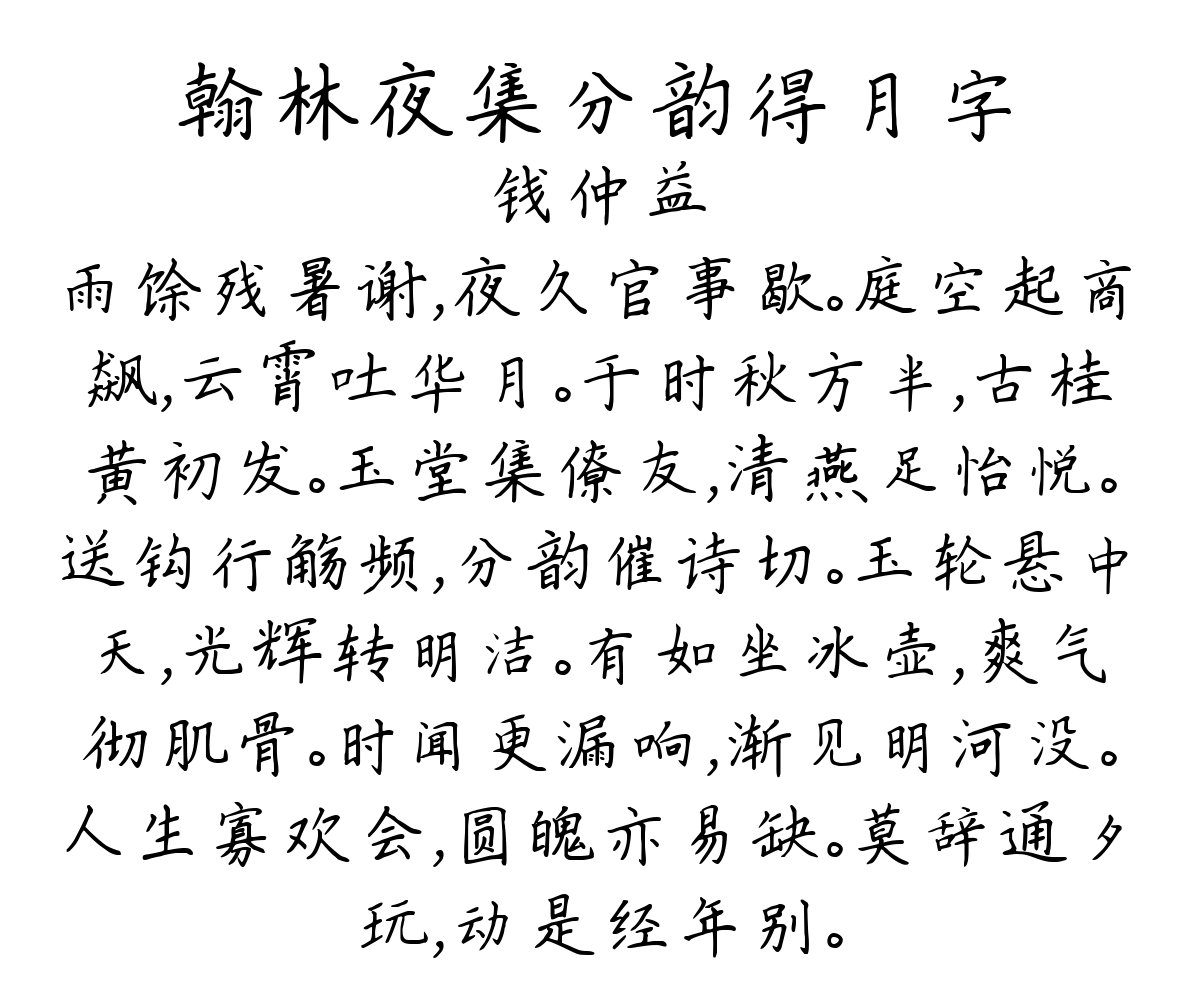 翰林夜集分韵得月字
钱仲益
雨馀残暑谢,夜久官事歇。庭空起商
飙,云霄吐华月。于时秋方半,古桂
黄初发。玉堂集僚友,清燕足怡悦。
送钩行觞频,分韵催诗切。玉轮悬中
天,光辉转明洁。有如坐冰壶,爽气
彻肌骨。时闻更漏响,渐见明河没。
人生寡欢会,圆魄亦易缺。莫辞通夕
玩,动是经年别。